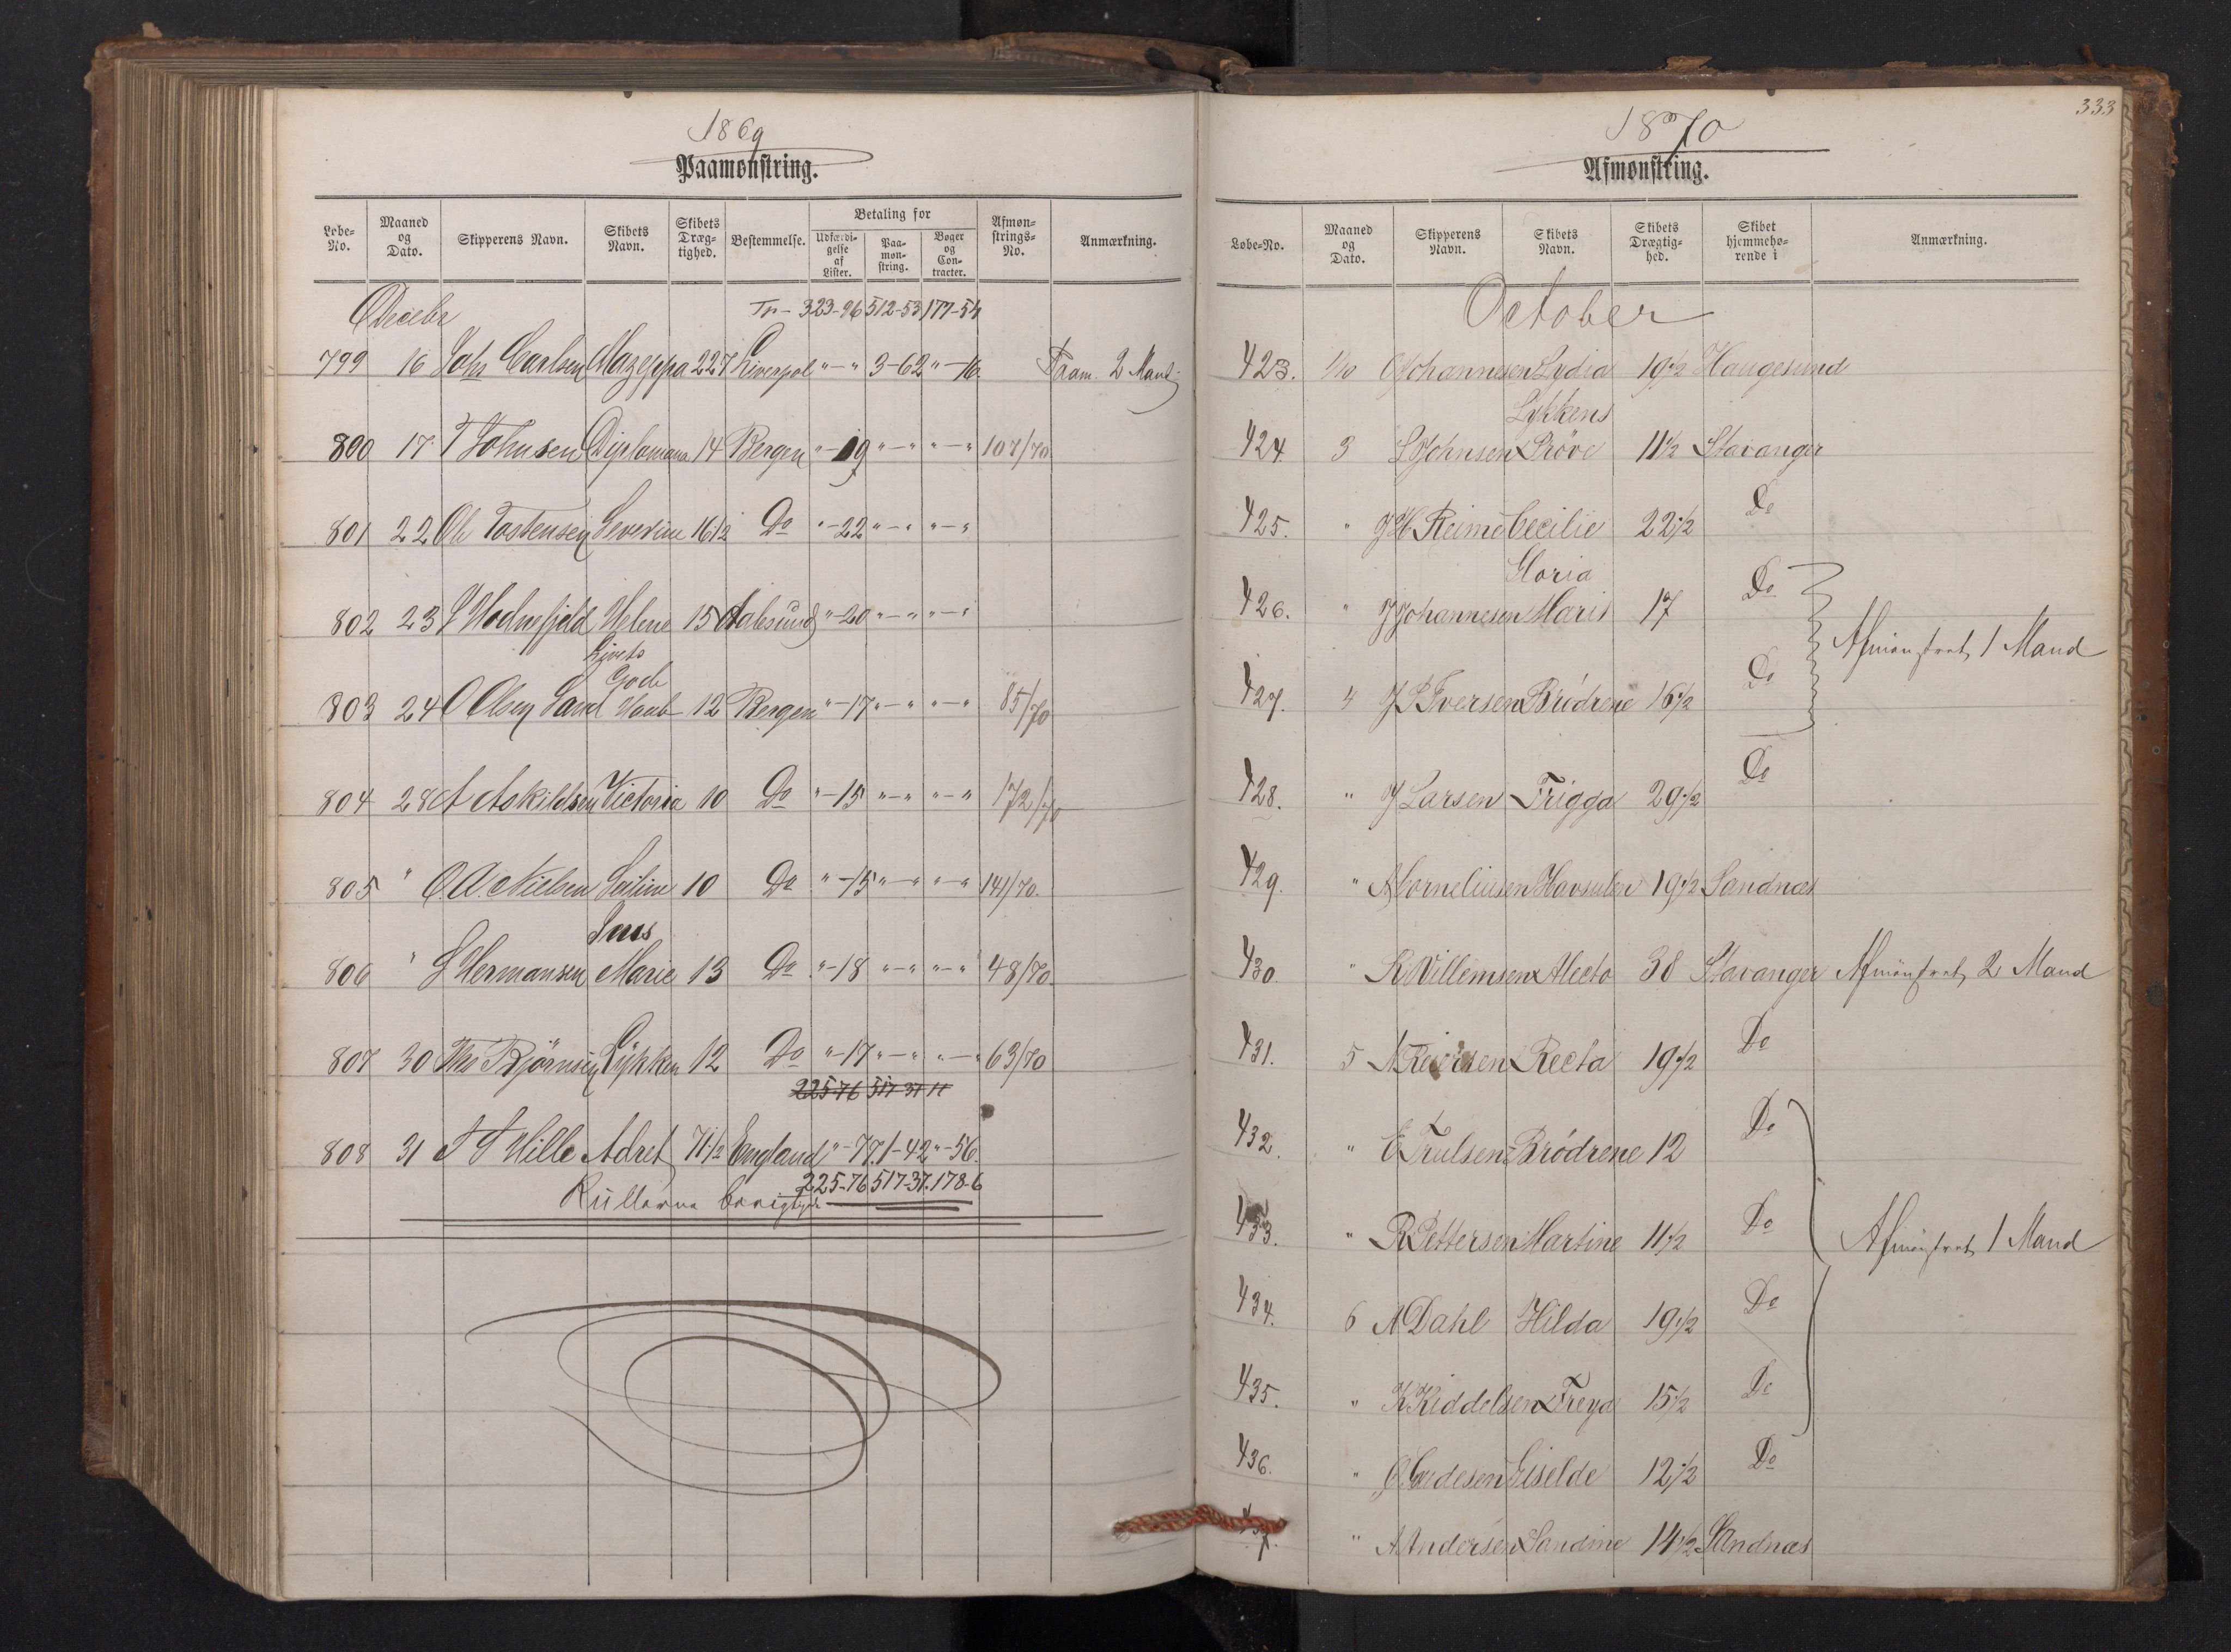 1869
Paamønstring.
Løbe-No. Maaned og Dato. Skipperens Navn. Skibets Navn. Skibets Dræg-tighed. Bestemmelse. Betaling for Udfærdi-gelse af Lister. Paa-møn-string. Bøger og Con-tracter. Afmøn-strings-No. Anmærkning.
Decebr Tr - 323-96 512-53 177-54
799 16 Johs Carlsen Mazeppa 227 Liverpol " - " 3-62 " -16. Paam. 2 Mand
800 17 T Johnsen Diplomana 14 Bergen " -19 " - " " - " 107/70
801 22 Ole Tostensen Severine 16 1/2 Do " -22 " - " " - "
802 23 Hodnefjeld Helene 15 Aalesund " -20 " - " " - "
Livets
Gode
803 24 O Olsen Sand Haab 12 Bergen " -17 " - " " - " 85/70
804 28 A Askildsen Victoria 10 Do " -15 " - " " - " 172/70
805 " O. A. Nielsen Seiline 10 Do " -15 " - " " - " 141/70.
806 " S Hermansen Marie 13 Do " -18 " - " " - " 48/70.
807 30 Ths Bjørnsen Lykken 12 Do " -17 " - " " - " 63/70
225-76 517 37 11
808 31 Wille Adret 71 1/2 England " -77. 1-42 " -56.
225-76 517-37. 178-6
Rullerne
333
1870
Afmønstring.
Løbe-No. Maaned og Dato. Skipperens Navn. Skibets Navn. Skibets Drægtig-hed. Skibet hjemmehø-rende i Anmærkning.
October
423. 1/10 Johannesen Lydia 19 1/2 Haugesund
Lykkens
424 3 S Johnsen Prøve 11 1/2 Stavanger
425. " J H Reime Cecilie 22 1/2 Do
Gloria
426. " J Johannesen Maris 17 Do
Afmønstret 1 Mand
427. 4 J P Iversen Brødrene 16 1/2 Do
428. " J Larsen Frigga 29 1/2 Do
429. " A Corneliusen Havsulen 19 1/2 Sandnæs
430. " R Willemsen Alecto 38 Stavanger Afmønstret 2 Mand
431. 5 N Reiersen Recta 19 1/2 Do
432. " E Trulsen Brødrene 12 Do
433. " R Pettersen Martine 11 1/2 Do Afmønstret 1 Mand
434. 6 A Dahl Hilda 19 1/2 Do
435. " K Kiddelsen Freya 15 1/2 Do
436. " Giselde 12 1/2 Do
437. " A Andersen Sandine 14 1/2 Sandnæs